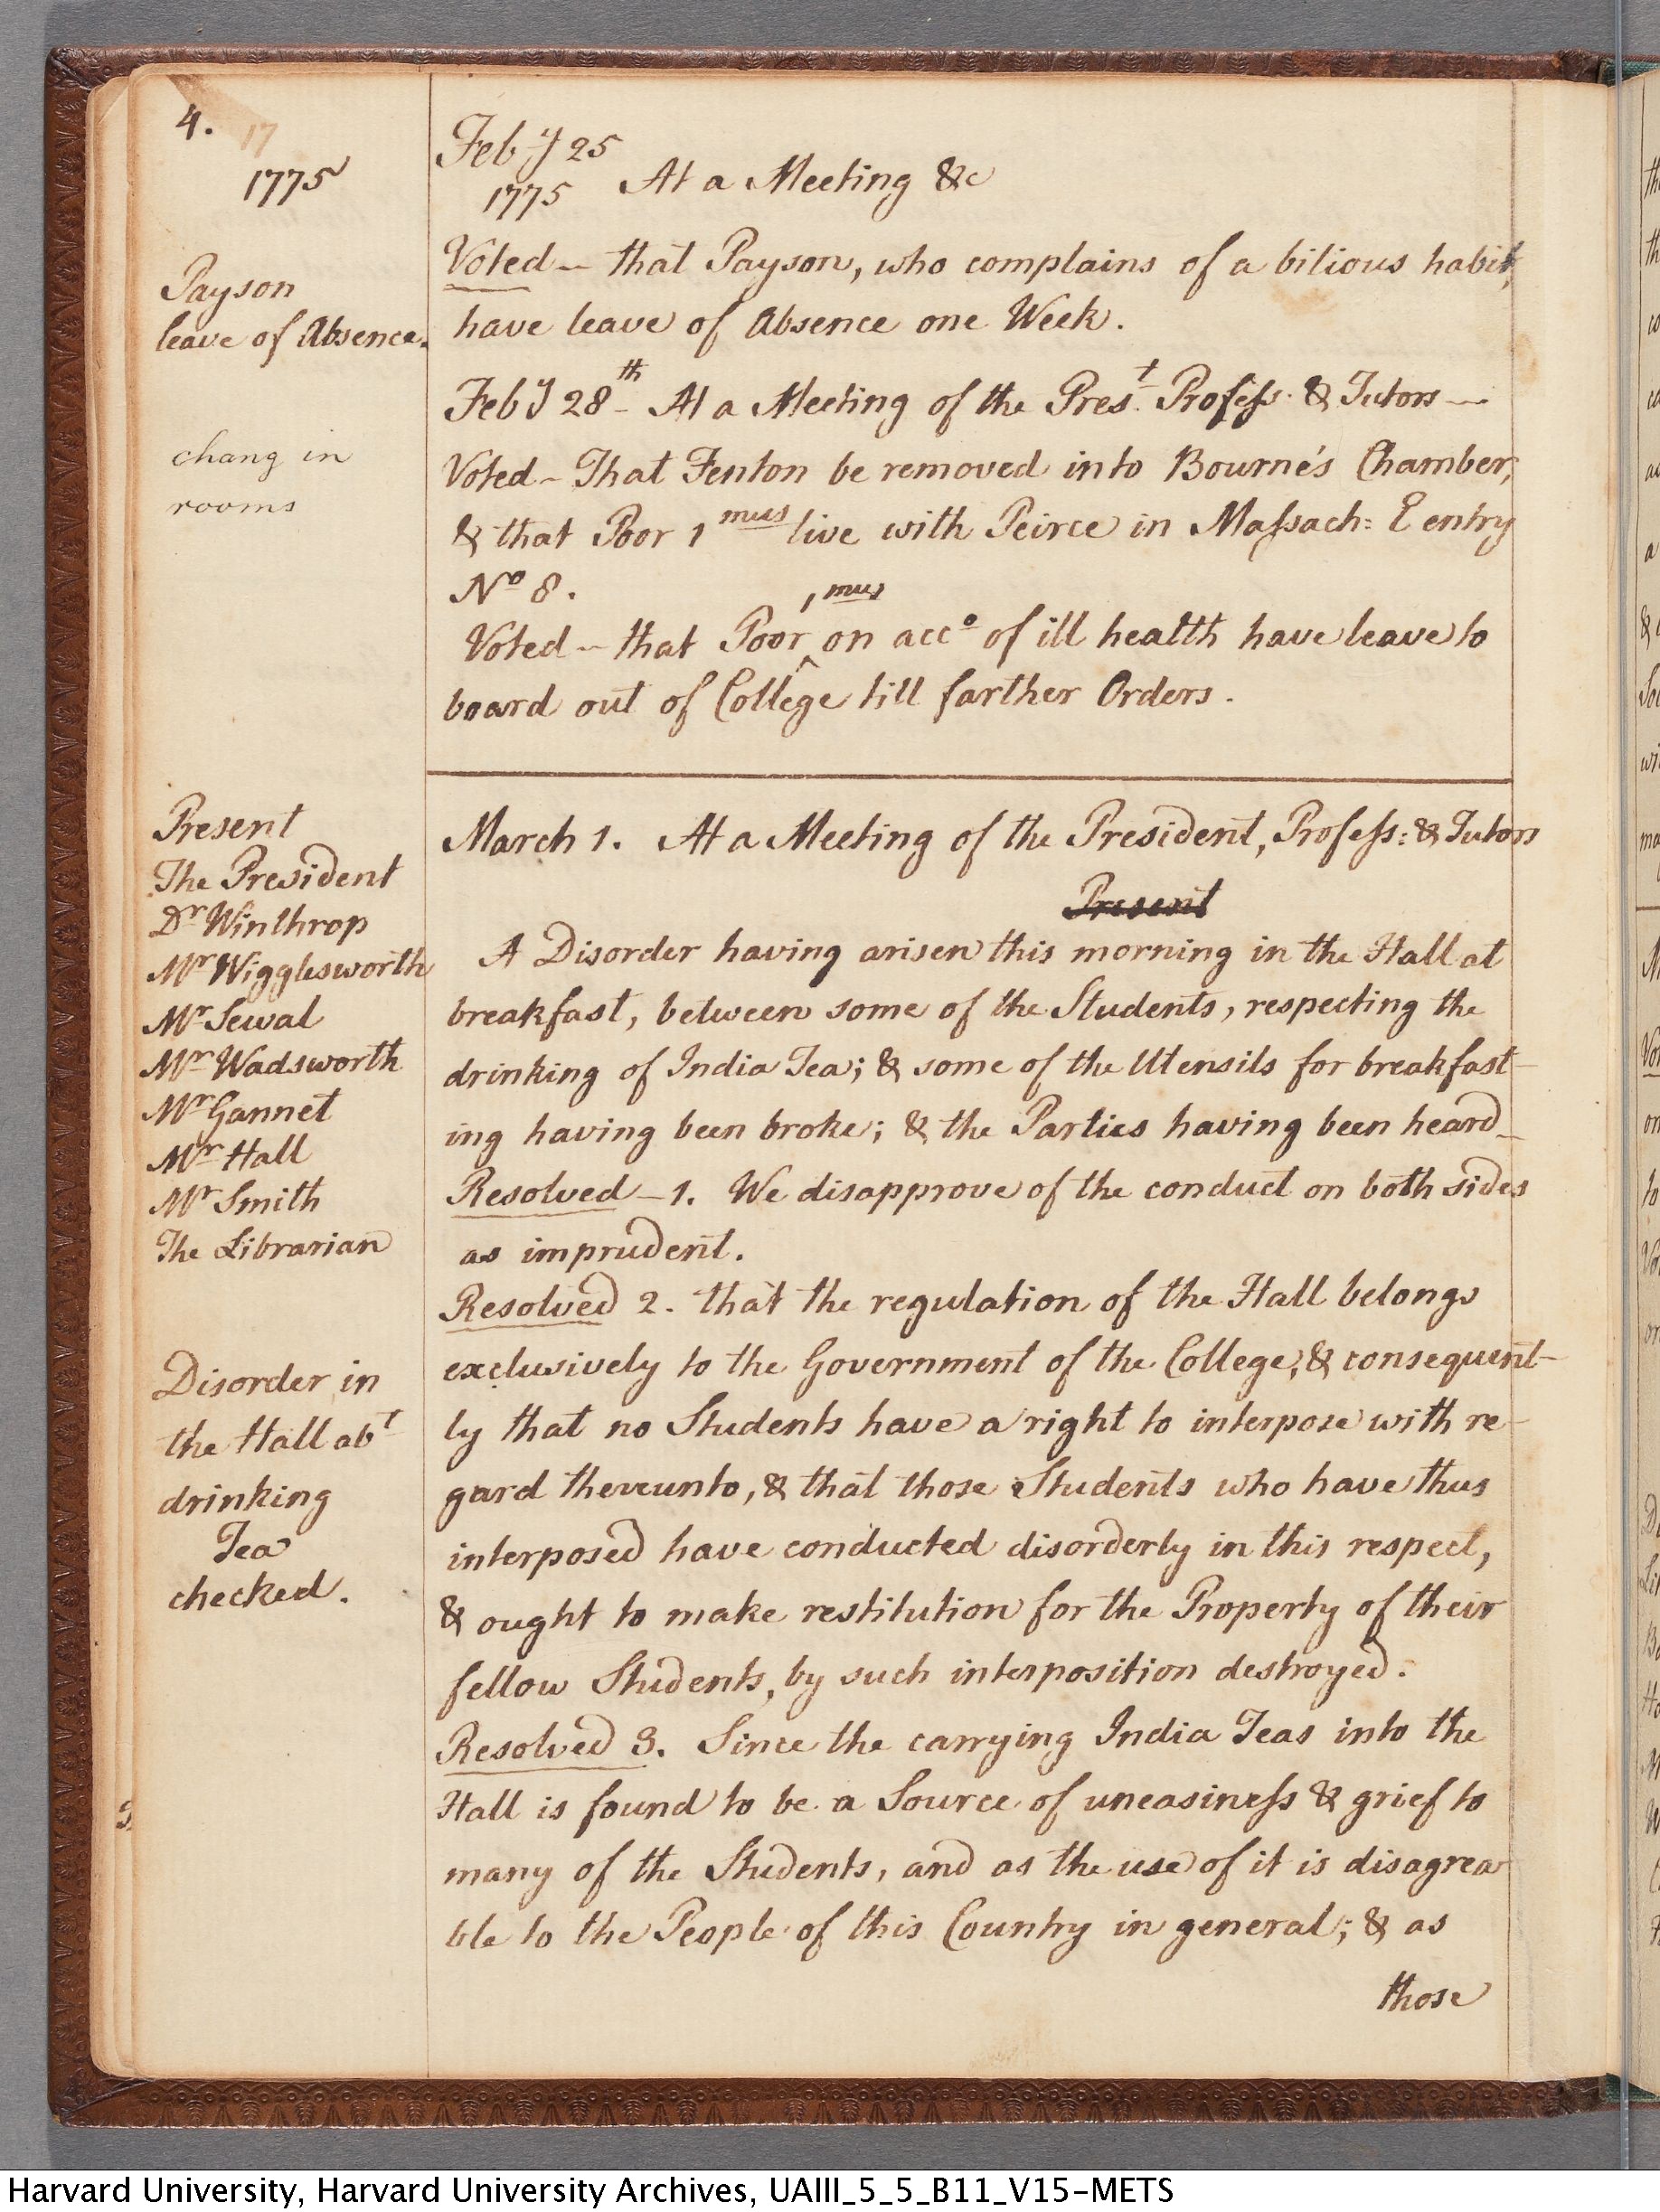 4.
17
1775
Feby 25
1775 At a Meeting &c
Payson
leave of Absence.
Voted – that Payson, who complains of a bilious habit,
have leave of Absence one Week.
Feby 28th – At a Meeting of the Prest. Profess. & Tutors –
chang in
rooms
Voted – That Fenton be removed into Bourne's Chamber,
& that Poor 1mus live with Peirce in Massach: E entry
No 8.
Voted – that Poor ^ 1mus on acco of ill health have leave to
board out of College till farther Orders.
Present
The President
Dr Winthrop
Mr Wigglesworth
Mr Sewal
Mr Wadsworth
Mr Gannet
Mr Hall
Mr Smith
The Librarian
March 1. At a Meeting of the President, Profess: & Tutors
Present
A Disorder having arisen this morning in the Hall at
breakfast, between some of the Students, respecting the
drinking of India Tea; & some of the Utensils for breakfast-
ing having been broke; & the Parties having been heard –
Resolved – 1. We disapprove of the conduct on both sides
as imprudent.
Resolved 2. that the regulation of the Hall belongs
exclusively to the Government of the College, & consequent-
ly that no Students have a right to interpose with re-
gard thereunto, & that those Students who have thus
interposed have conducted disorderly in this respect,
& ought to make restitution for the Property of their
fellow Students, by such interposition destroyed.
Disorder in
the Hall abt
drinking
Tea
checked.
Resolved 3. Since the carrying India Teas into the
Hall is found to be a Source of uneasiness & grief to
many of the Students, and as the use of it is disagrea-
ble to the People of this Country in general; & as
those
Harvard University, Harvard University Archives, UAIII_5_5_B11_V15-METS